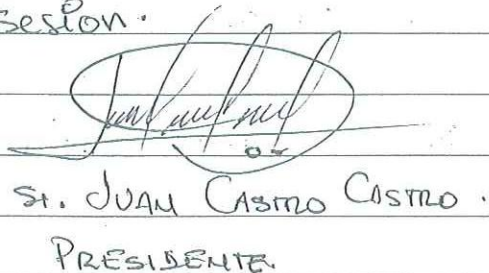 sesion.
Sr. JUAN CASTRO CASTRO.
PRESIDENTE